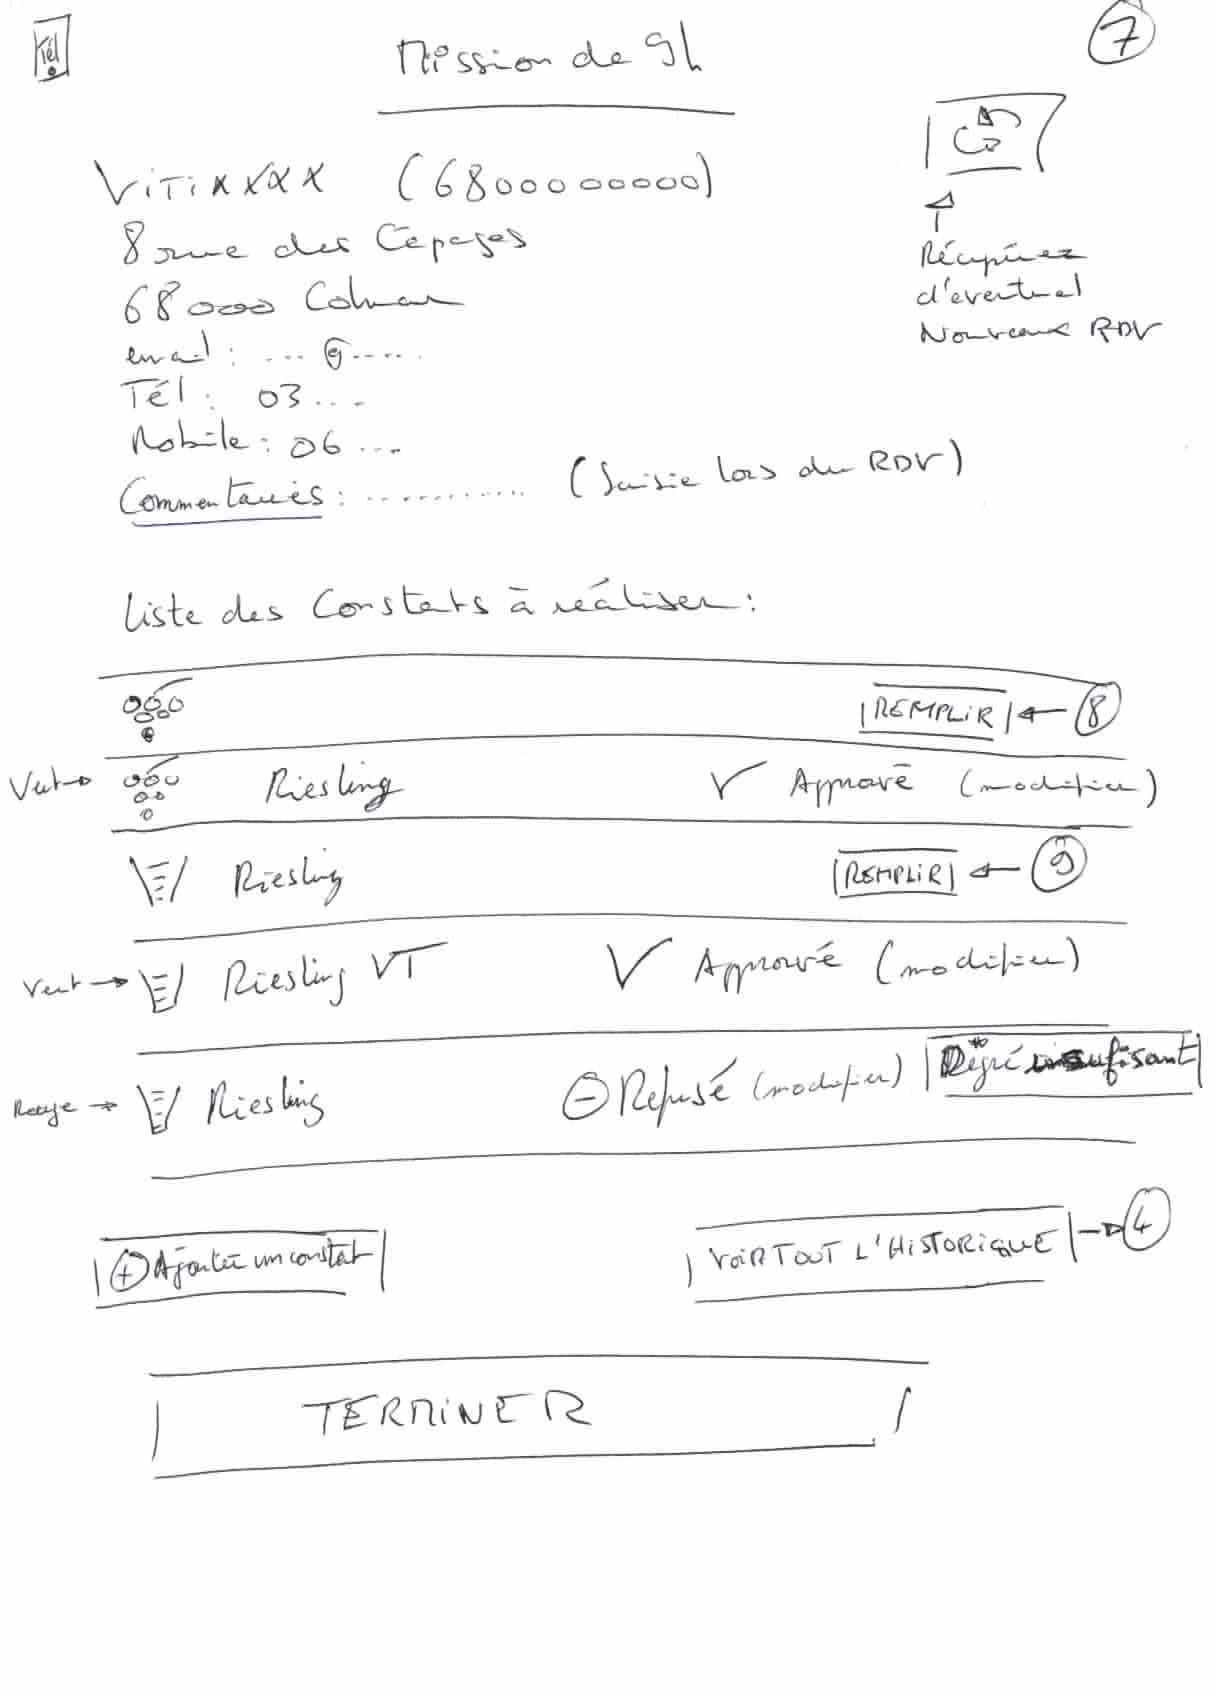 Tél
Mission de 9h
7
VITI XXXX (6800000000)
8 rue des Cépages
68000 Colmar
email : ....@.....
Tél : 03....
Mobile : 06....
Commentaires : ........... (Saisie lors du RDV)
Récupérez
d'eventuel
Nouveaux RDV
Liste des Constats à réaliser :
REMPLIR ← 8
Vert → Riesling ✓ Approuvé (modifier)
Riesling REMPLIR ← 9
Vert → Riesling VT ✓ Approuvé (modifier)
Rouge → Riesling ⊖ Refusé (modifier) Degré insufisant
⊕ Ajouter un constat VOIR TOUT L'HISTORIQUE → 4
TERMINER